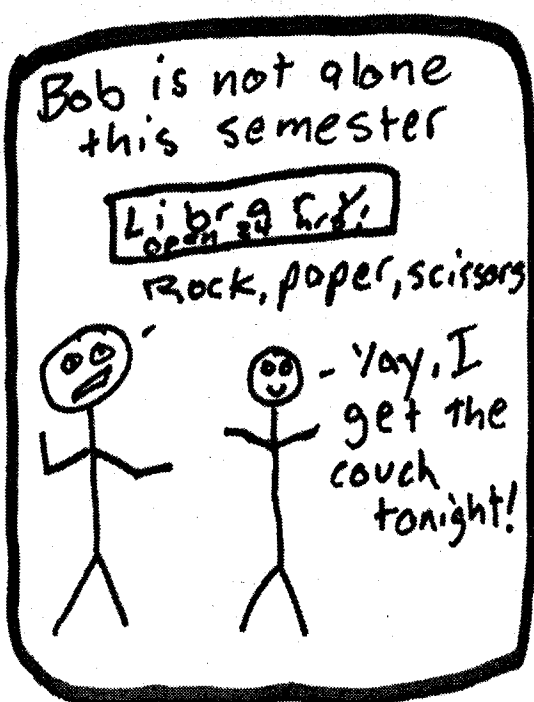 Bob is not alone
this semester
Library
open 24 hrs.
Rock, paper, scissors
- Yay, I
get the
couch
tonight!